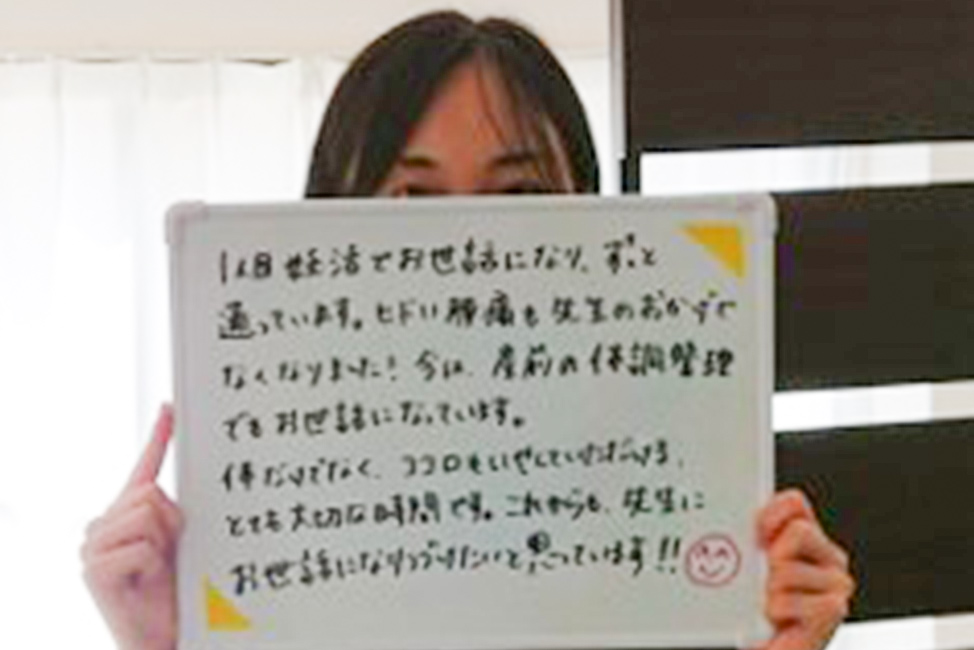 1人目妊活でお世話になり、ずっと
通っています。ヒドい腰痛も先生のおかげで
なくなりました!今は、産前の体調整理
でもお世話になっています。
体だけでなく、ココロもいやしていただける、
とても大切な時間です。これからも、先生に
お世話になりつづけたいと思っています!!